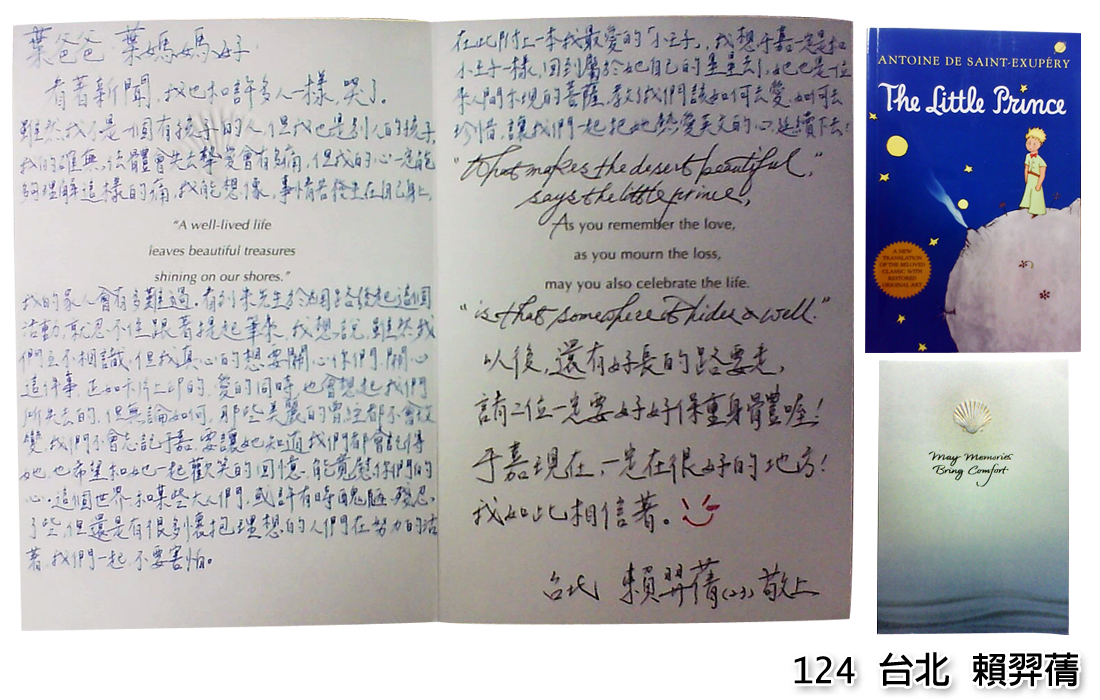 葉爸爸、葉媽媽好：
看著新聞，我也和許多人一樣，哭了。
雖然我不是一個有孩子的人，但我也是別人的孩子，
我的確無法體會失去摯愛會有多痛，但我的心一定能
夠理解這樣的痛，我能想像，事情若發生在自己身上，
"A well-lived life
leaves beautiful treasures
shining on our shores."
我的家人會有多難過。看到朱先生於網路發起這個
活動，就忍不住跟著提起筆來，我想說，雖然我
們互不相識，但我真心的想要關心你們，關心
這件事，正如卡片上印的，愛的同時，也會想起我們
所失去的，但無論如何，那些美麗的曾經都不會改
變，我們不會忘記于嘉，要讓她知道我們都會記得
她，也希望和她一起歡笑的回憶，能寬慰你們的
心。這個世界和某些大人們，或許有時醜陋、殘忍
了些，但還是有很多懷抱理想的人們在努力的活
著，我們一起，不要害怕。
在此附上一本我最愛的「小王子」，我想于嘉一定是和
小王子一樣，回到屬於她自己的星星去了，她也是一位
來人間示現的菩薩，教了我們該如何去愛、如何去
珍惜，讓我們一起把她熱愛英文的心，延續下去！
"What makes the desert beautiful,"
says the little prince,
As you remember the love,
as you mourn the loss,
may you also celebrate the life.
"is that somewhere it hides a well."
以後，還有好長的路要走，
請二位一定要好好保重身體喔！
于嘉現在，一定在很好的地方！
我如此相信著。
台北 賴羿蒨(23) 敬上
ANTOINE DE SAINT-EXUPÉRY
The Little Prince
A NEW
TRANSLATION
OF THE BELOVED
CLASSIC WITH
RESTORED
ORIGINAL ART
May Memories
Bring Comfort
124 台北 賴羿蒨